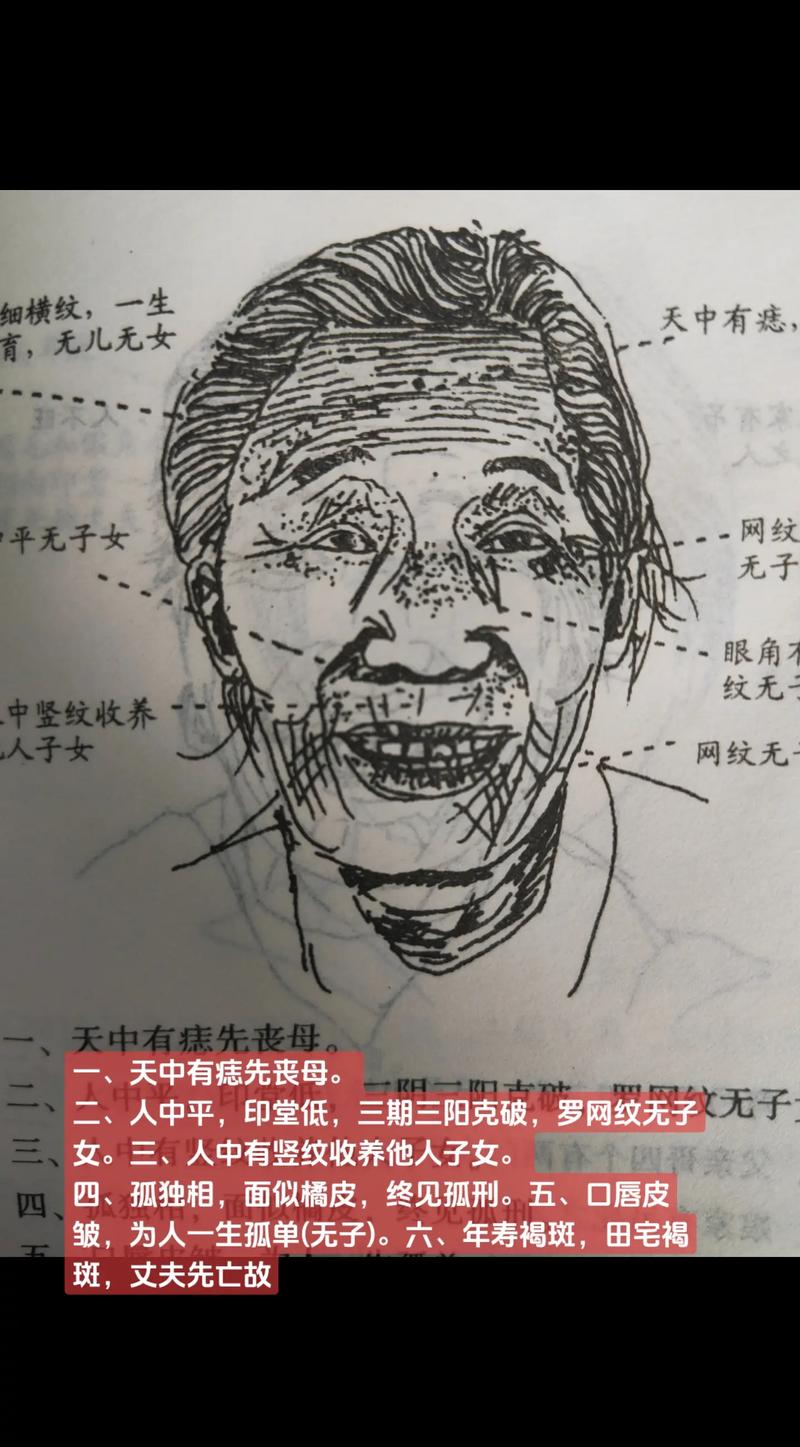 细横纹，一生
育，无儿无女
天中有痣，
中平无子女
网纹
无子
眼角
纹无子
中竖纹收养
人子女
网纹无子
一、天中有痣先丧母。
二、
三、
四、
纹无子
一、天中有痣先丧母。
二、人中平，印堂低，三期三阳克破，罗网纹无子
女。三、人中有竖纹收养他人子女。
四、孤独相，面似橘皮，终见孤刑。五、口唇皮
皱，为人一生孤单(无子)。六、年寿褐斑，田宅褐
斑，丈夫先亡故